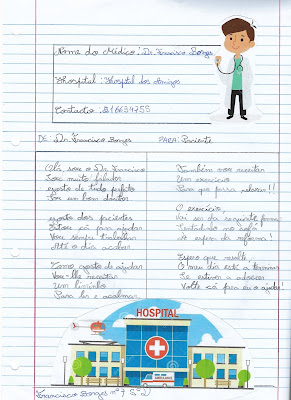 Nome do Médico: Dr. Francisco Borges
Hospital: Hospital dos Amigos
Contacto: 216634755
DE: Dr. Francisco Borges PARA: Paciente
Olá sou o Dr. Francisco
Sou muito falador
gosto de tudo perfeito
Sou um bom doutor
gosto dos pacientes
Estou cá para ajudar
Vou sempre trabalhar
Até o dia acabar
Como gosto de ajudar
Vou-lhe receitar
Um livrinho
Para ler e acalmar
Também vou receitar
Um exercício
Para que possa relaxar!!
O exercício
Vai ser da seguinte forma
Sentadinho no sofá
À espera da reforma!
Espero que resulte
O meu dia está a terminar
Se estiver a adoecer
Volte cá para eu o ajudar!
HOSPITAL
AMBULANCE
Francisco Borges nº 7 5º D